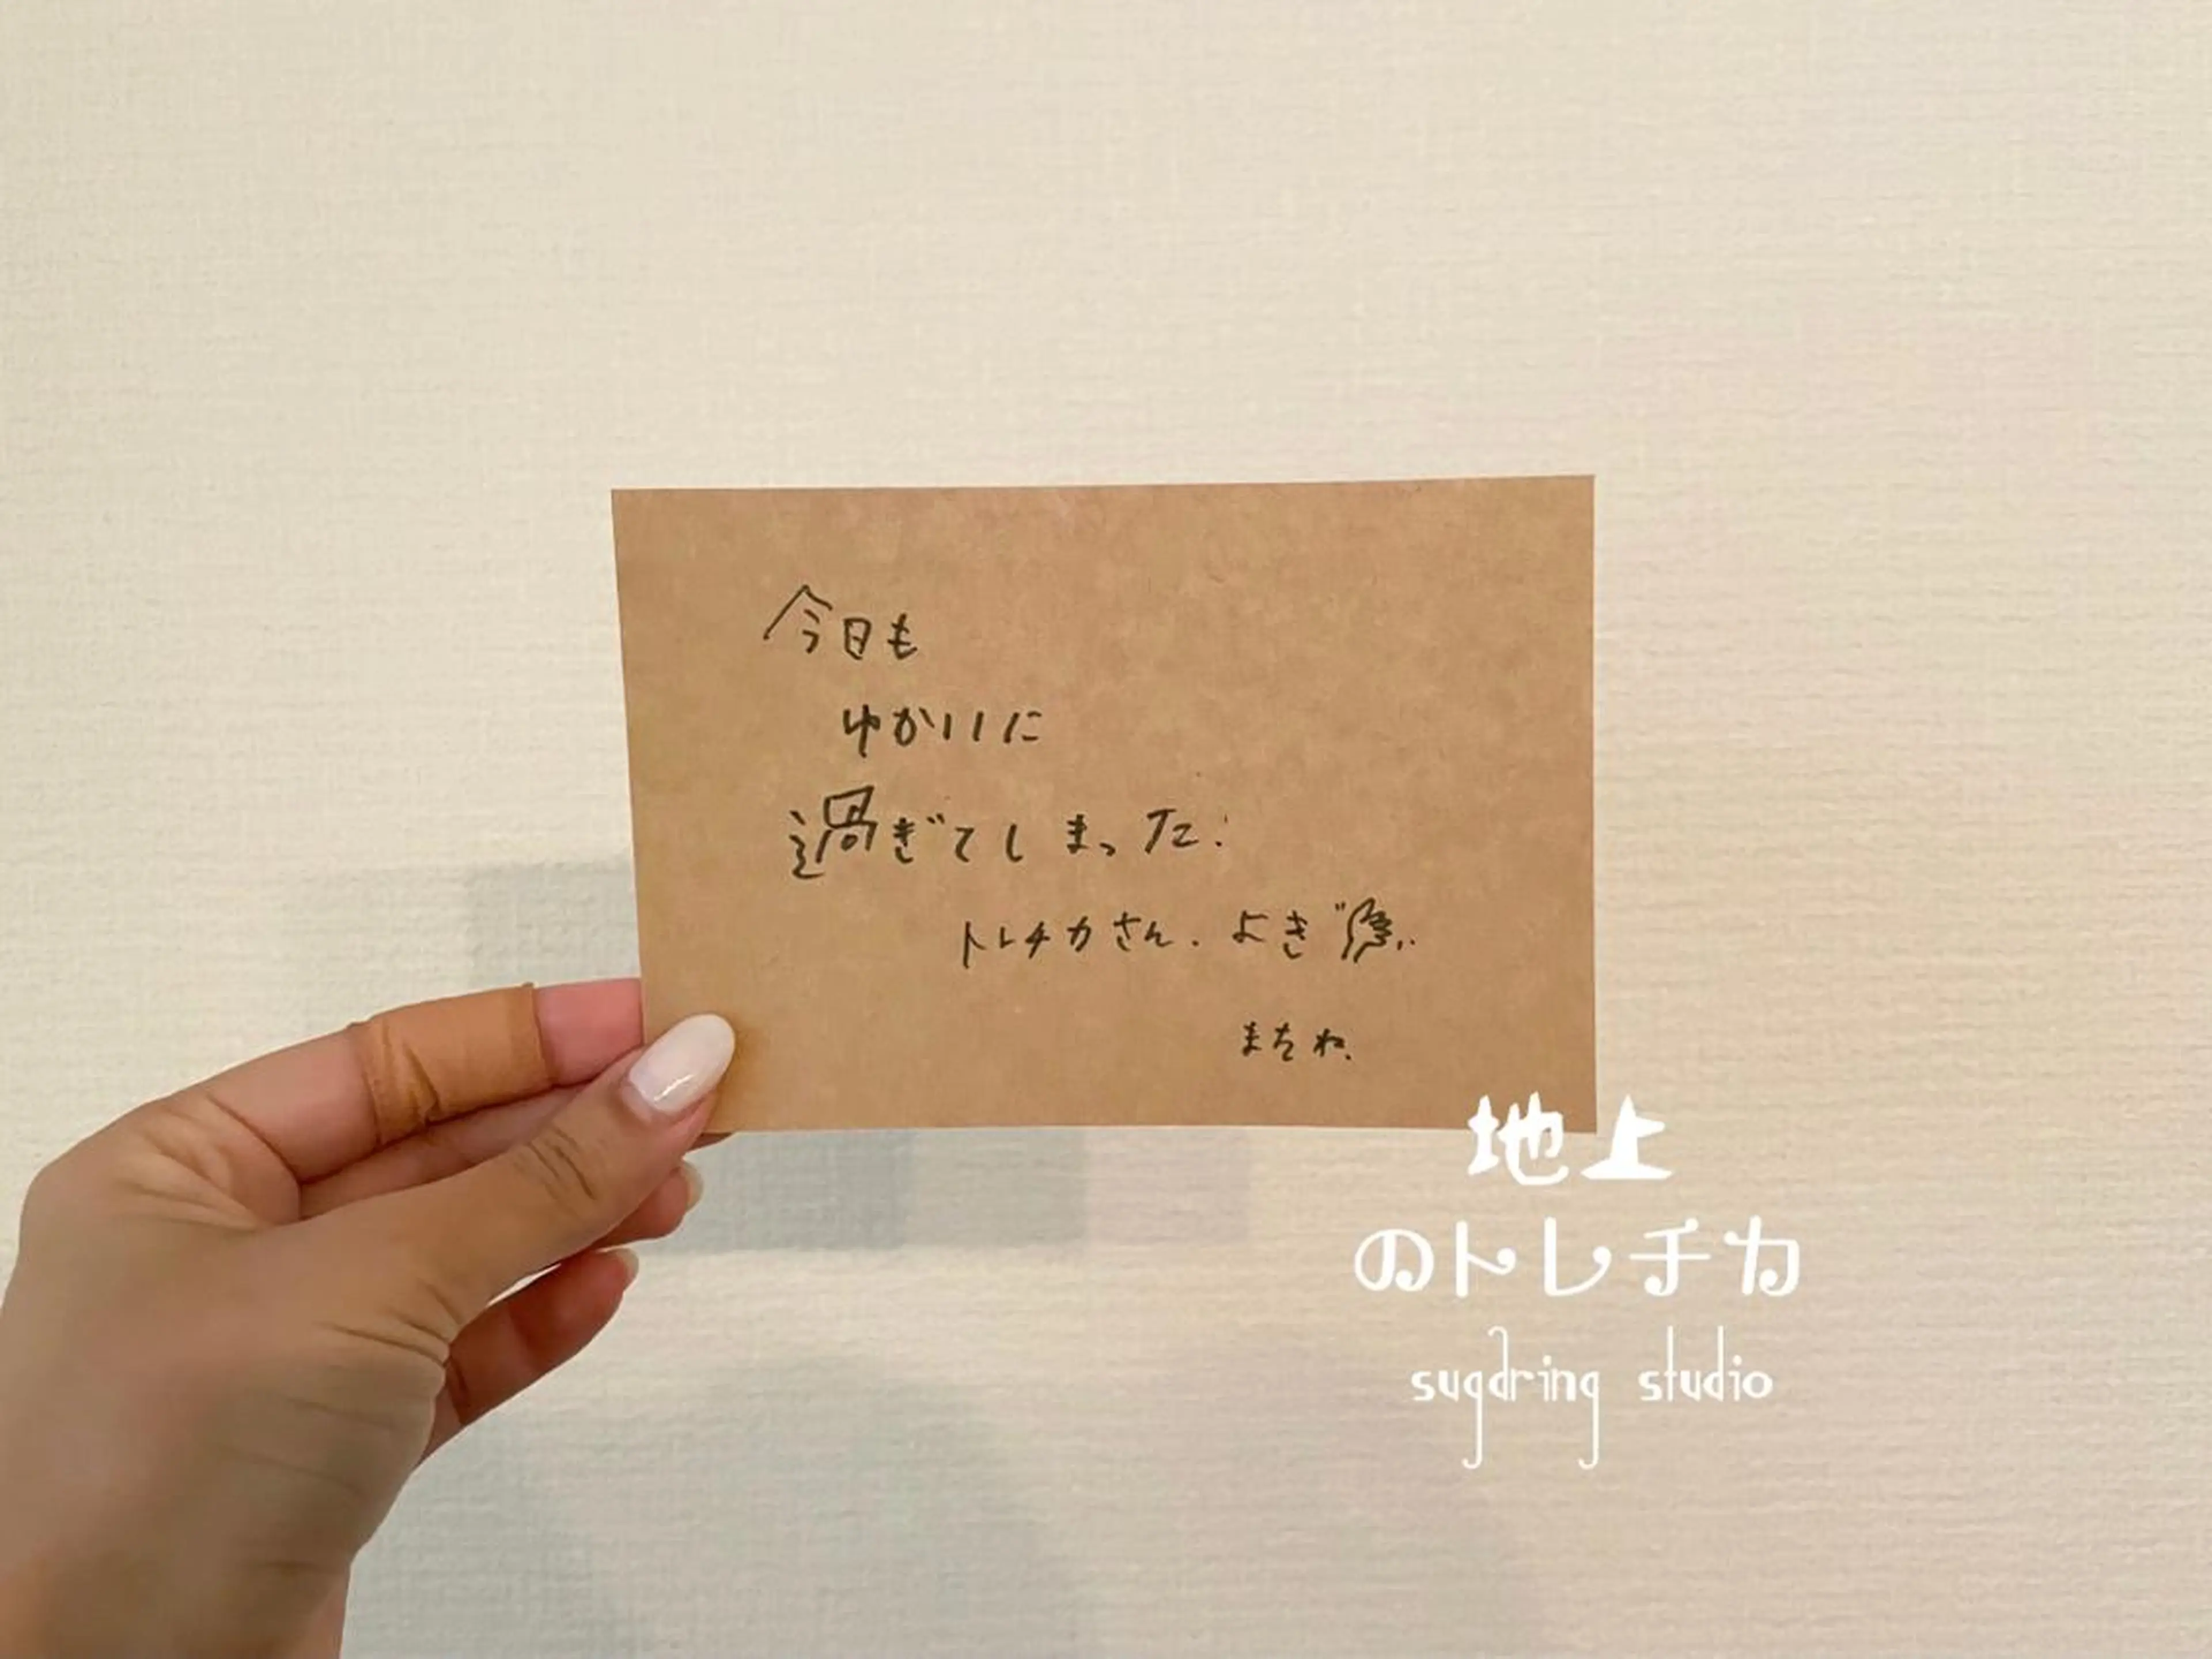 今日も
ゆかいに
過ぎてしまった!
トレチカさん. よき
またね.
地上
のトレチカ
sugdring studio